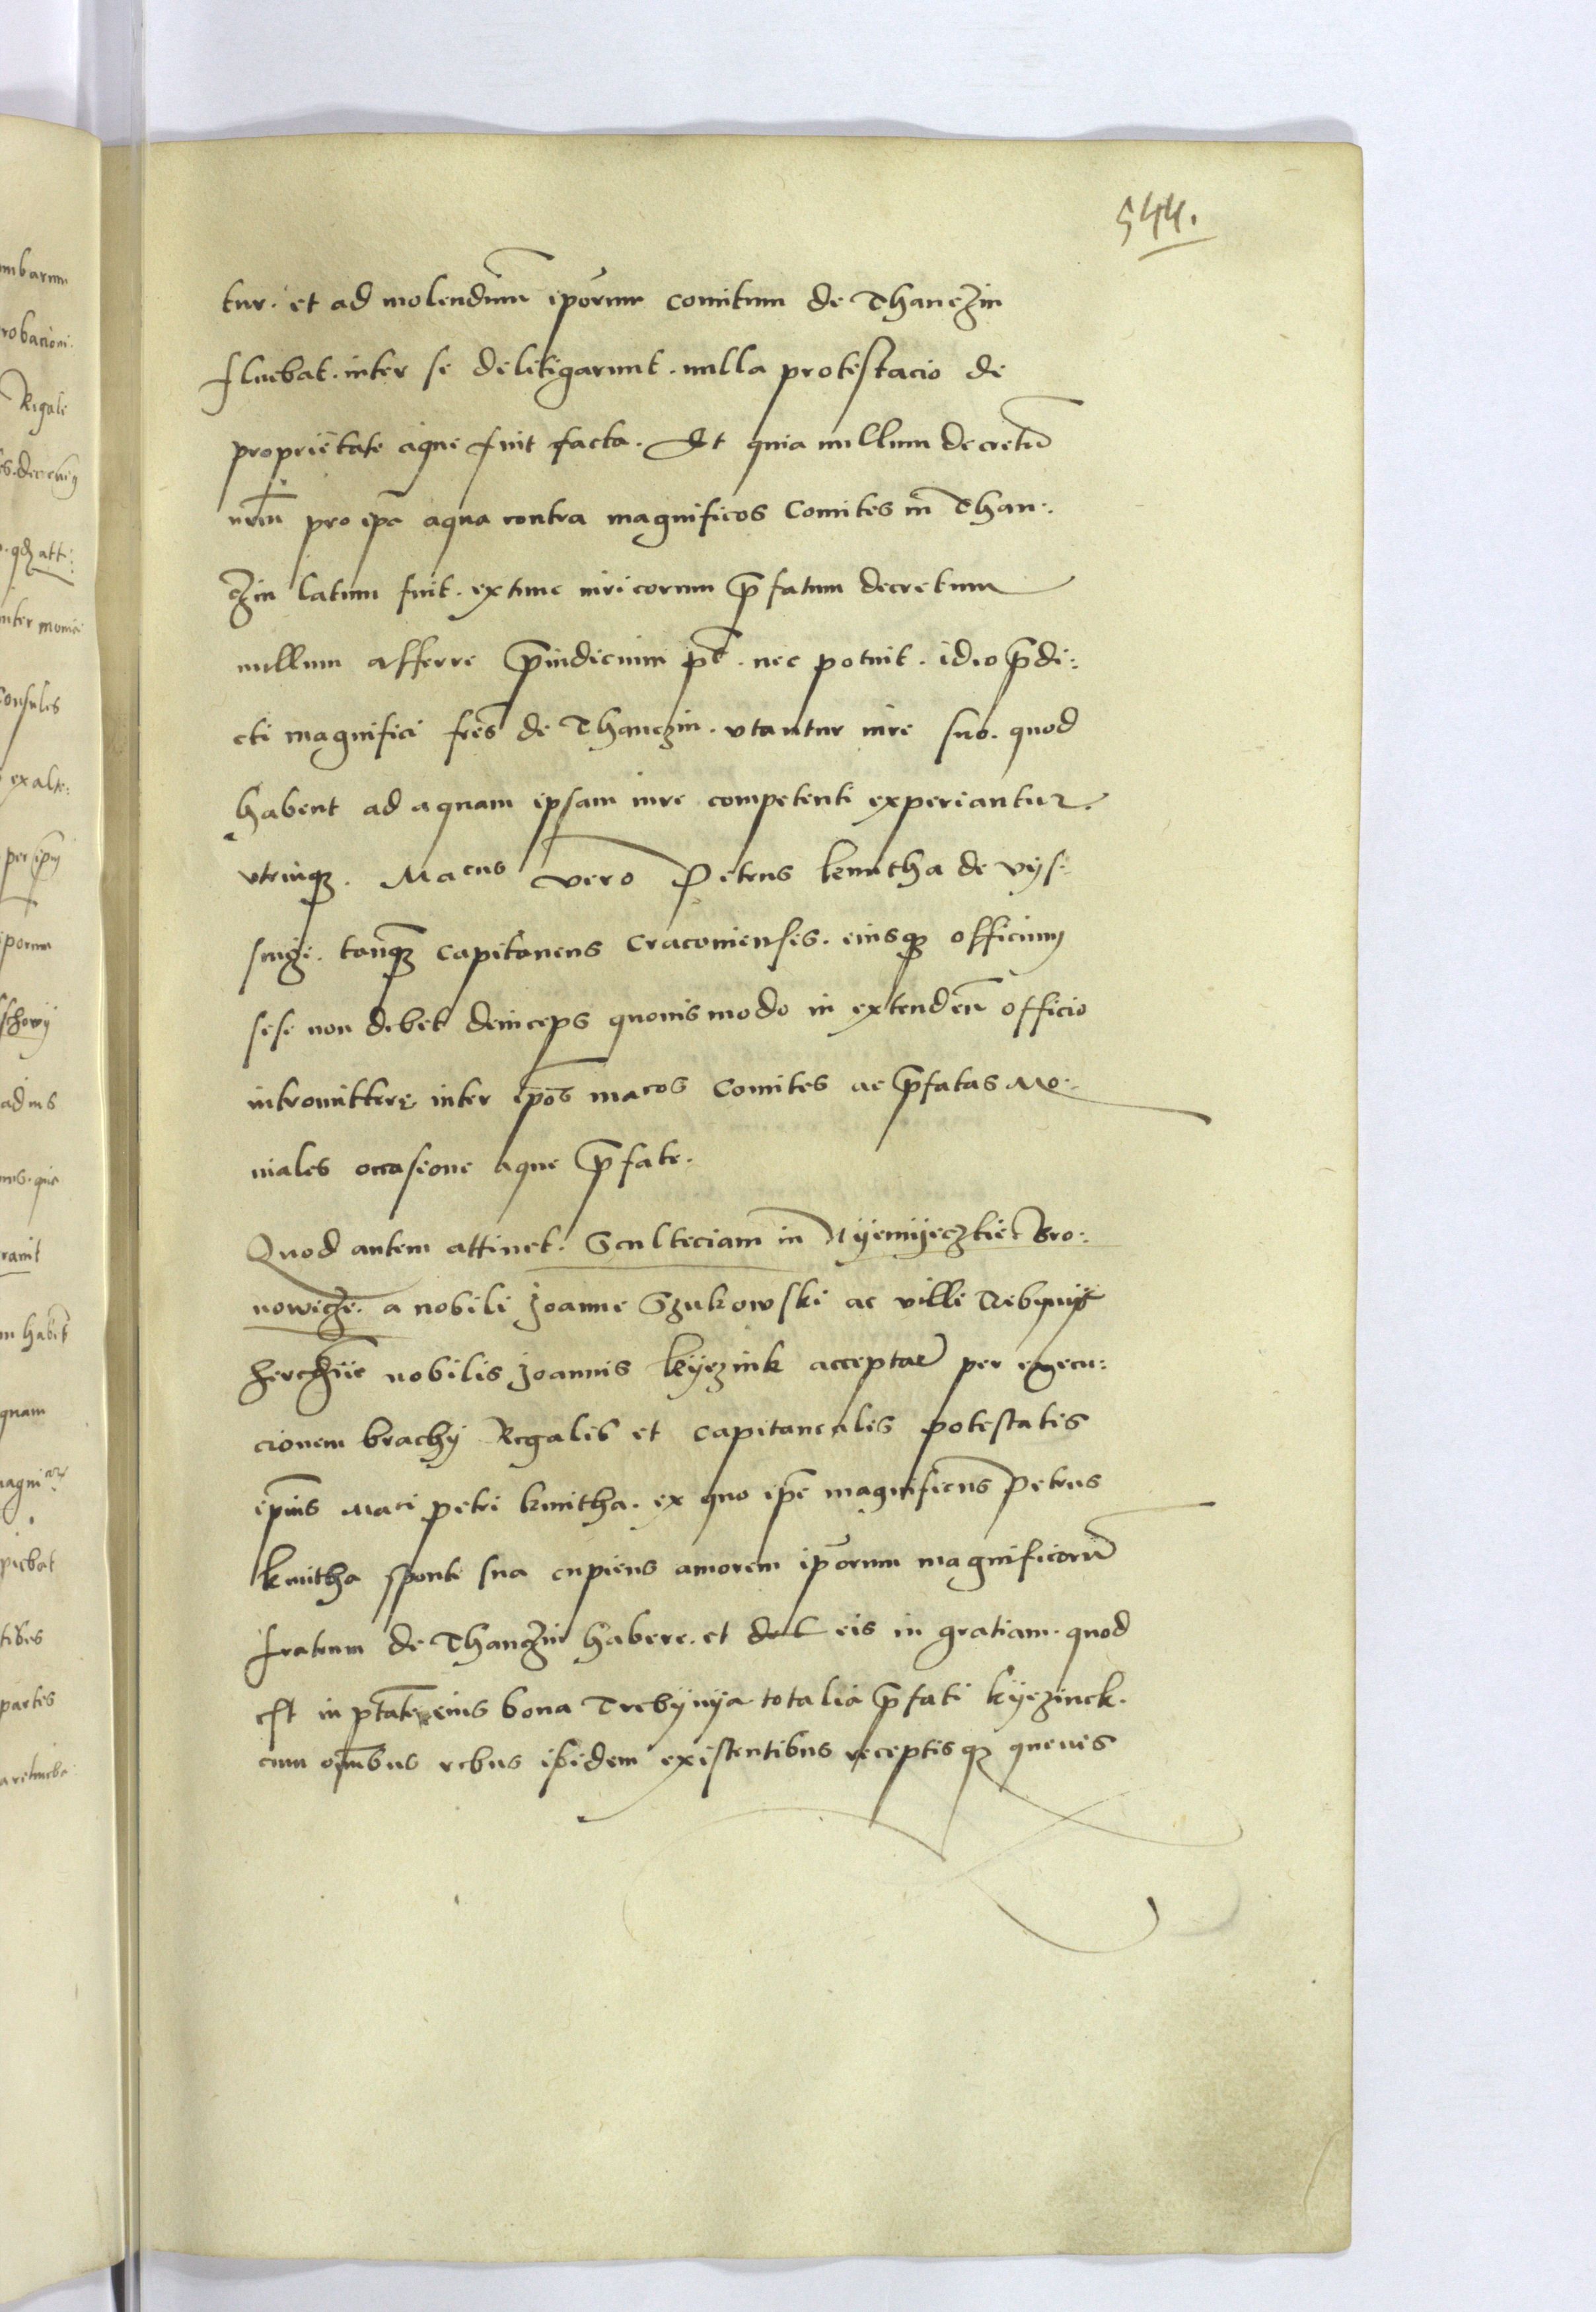 544.
tur. et ad molendinū ip̄orum comitum de Thanczin
fluebat. inter se delitigarunt. nulla protestacio de
proprietate aque fuit facta. Et quia nullum decretū
nr̄m pro ip̄a aqua contra magnificos Comites in Than:
czin latum fuit. extunc iuri eorum p̄fatum decretum
nullum afferre p̄iudicium pt̄. nec potuit. ideo p̄di:
cti magnifici fr̄es de Thanczin. vtantur iure suo. quod
habent ad aquam ipsam iure competenti experiantur.
vtrinqꝫ. Macus vero Petrus kmitha de vys:
nige. tanqꝫ Capitaneus Cracouiensis. eiusqꝫ officium
sese non debet deinceps quouismodo in extenden̄ officio
intromittere inter ip̄os macos Comites ac p̄fatas Mo:
niales occasione aque p̄fate.
Quod autem attinet. Sculteciam in Nyemyeczkie Bro:
nowicze. a nobili Joanne Szukowski ac ville Trebynye
nobilis Joannis kyezink acceptar̄ per execu:
cionem brachy Regalis et Capitanealis potestatis
ip̄ius Maci petri kmitha. ex quo ip̄e magnificus Petrus
kmitha sponte sua cupiens amorem ip̄orum magnificorū
fratrum de Thanczin habere. et eis in gratiam. quod
est in ptāte eius bona Trebynya totalia p̄fati kyezinck.
cum om̄ibus rebus ibidem existentibus receptisqꝫ queuis
mbarum
robacioni.
Regale
qđ att:
inter monia
Consules
exalte:
per ip̄m
iporum
ad ius
ranit
m habet
quam
partes